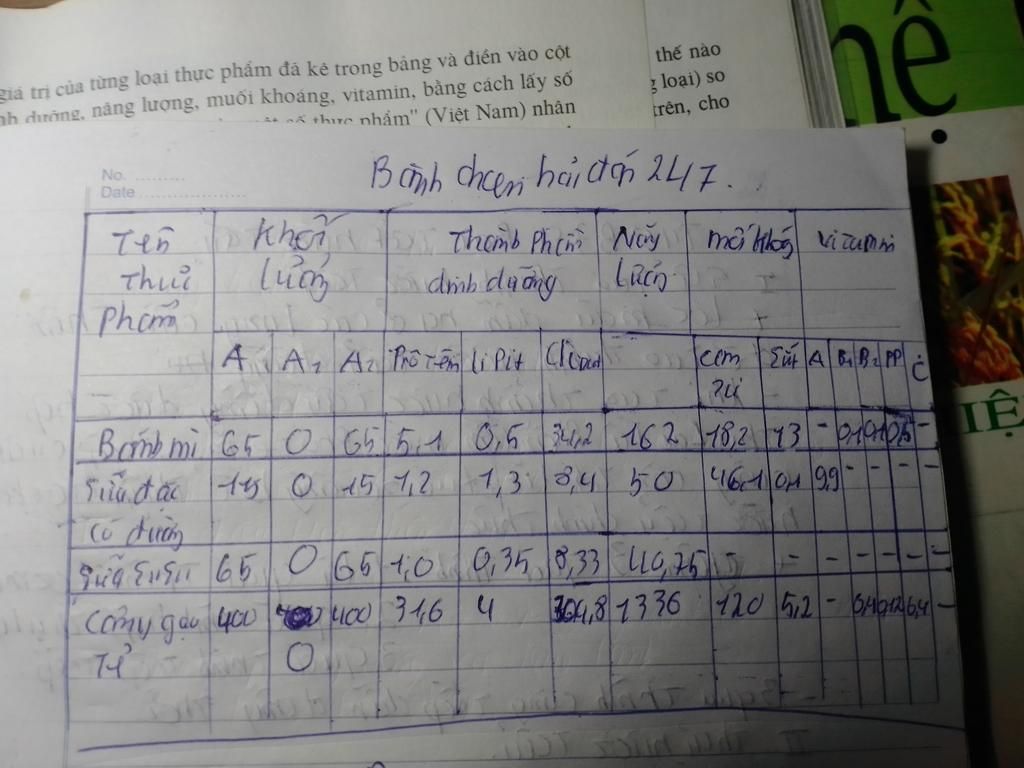 giá trị của từng loại thực phẩm đã kê trong bảng và điền vào cột
dưỡng, năng lượng, muối khoáng, vitamin, bằng cách lấy số
số thực phẩm" (Việt Nam) nhân
thế nào
loại) so
trên, cho
ê
IỆ
No.
Date
Bảng 247.
Tên thực phẩm Khối lượng Thành phần dinh dưỡng Năng lượng muối khoáng vitamin
A A1 A2 Prôtêin Lipit can xi Sắt A B1 B2 PP C
Bánh mì 65 0 65 5,1 0,5 34,2 162 18,2 13 - 0,1 0,1 0,5 -
Sữa đặc có đường 15 0 15 1,2 1,3 8,4 50 46,1 0,1 9,9 - - - -
65 0 65 1,0 0,35 8,33 - - - - - -
Cơm gạo tẻ 400 0 400 31,6 4 304,8 1336 120 5,2 - 0,4 0,12 6,4 -